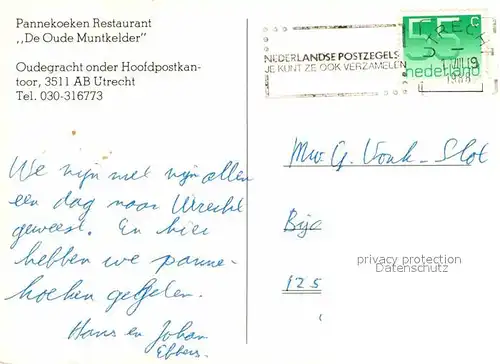 Pannekoeken Restaurant
,,De Oude Muntkelder"
Oudegracht onder Hoofdpostkan-
toor, 3511 AB Utrecht
Tel. 030-316773
NEDERLANDSE POSTZEGELS
JE KUNT ZE OOK VERZAMELEN
UTRECHT
1988
55c
nederland
We zijn met zijn allen
een dag naar Utrecht
geweest. En hier
hebben we panne-
koeken gegeten.
Hans en Johan
Ebbers.
Mw G. Vonk-Slot
125
privacy protection
Datenschutz